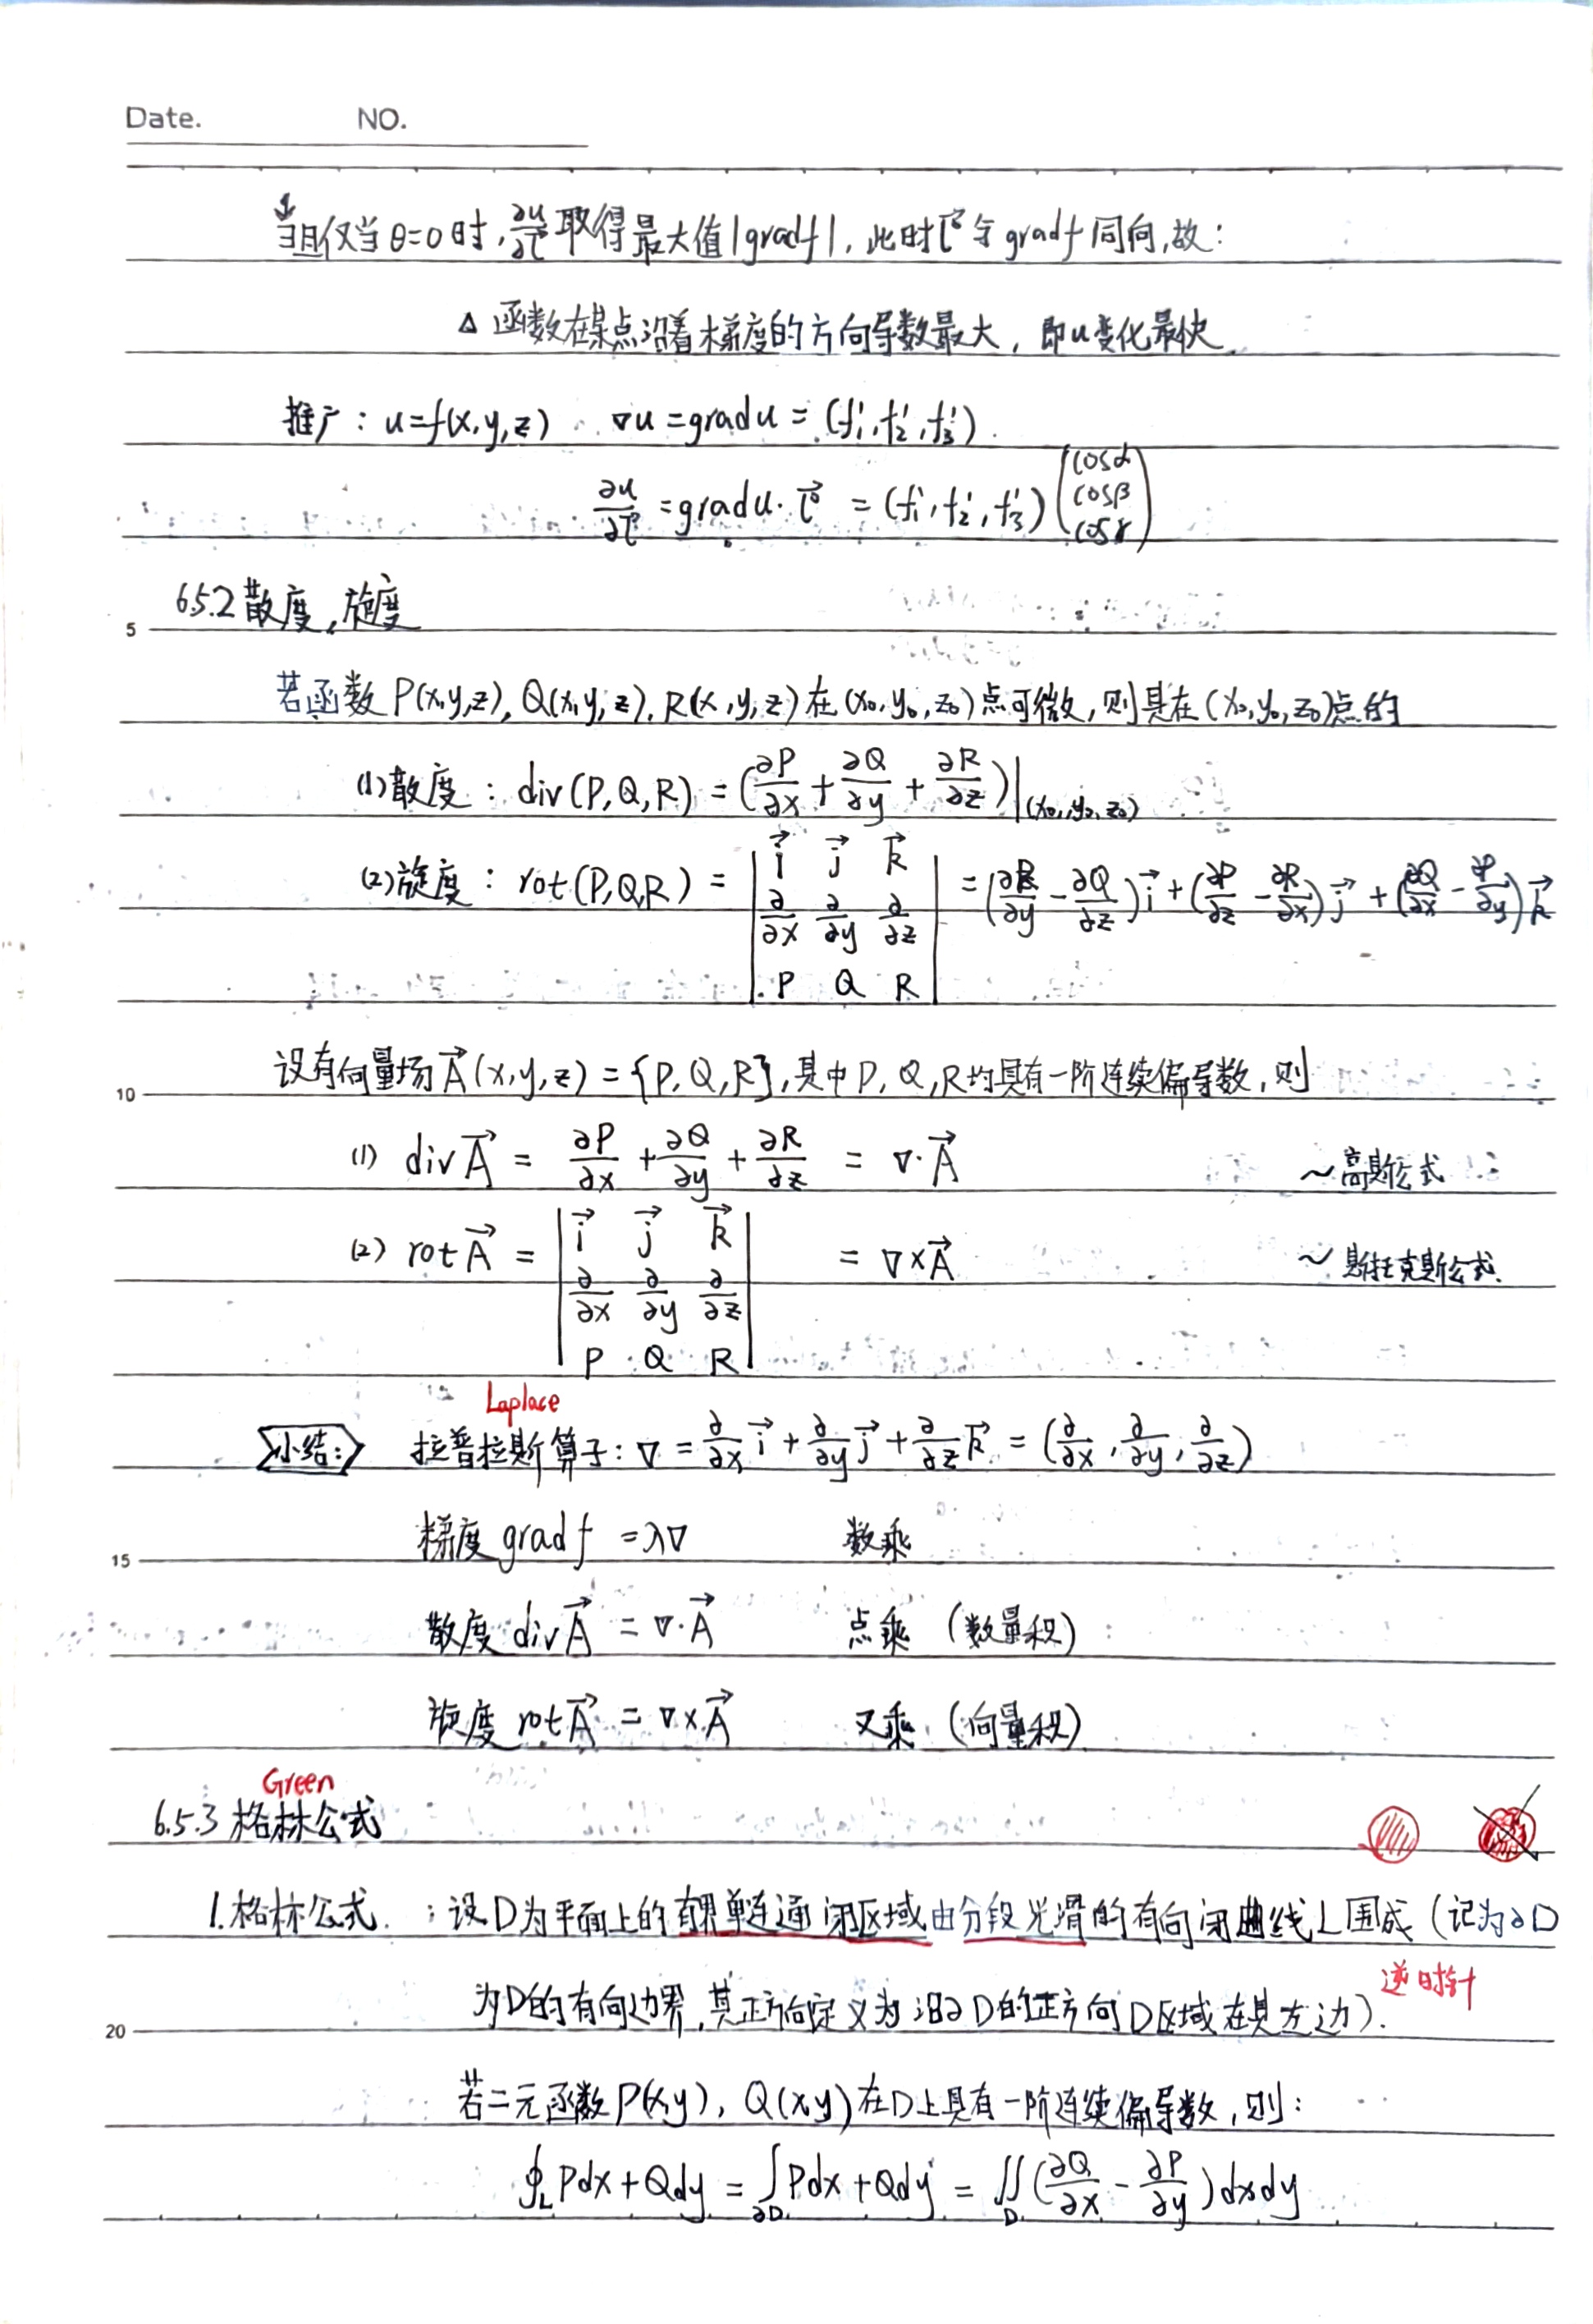 Date. NO.
当且仅当 θ=0 时, ∂u/∂l⃗ 取得最大值|gradf|, 此时 l⃗° 与 gradf 同向,故:
Δ 函数在某点沿着梯度的方向导数最大, 即u变化最快.
推广: u=f(x,y,z) ∇u =gradu = (f₁', f₂', f₃').
∂u/∂l⃗ =gradu· l⃗° = (f₁', f₂', f₃') (cosα cosβ cosγ)
6.5.2 散度,旋度
5
若函数 P(x,y,z), Q(x,y,z), R(x,y,z) 在 (x₀,y₀,z₀) 点可微,则其在 (x₀,y₀,z₀)点的
(1)散度: div(P,Q,R) = (∂P/∂x + ∂Q/∂y + ∂R/∂z)|(x₀,y₀,z₀)
(2)旋度: rot(P,Q,R) = | i⃗ j⃗ k⃗ ; ∂/∂x ∂/∂y ∂/∂z ; P Q R | = (∂R/∂y - ∂Q/∂z) i⃗ + (∂P/∂z - ∂R/∂x) j⃗ + (∂Q/∂x - ∂P/∂y) k⃗
设有向量场 A⃗(x,y,z) = {P,Q,R}, 其中 P, Q, R均具有一阶连续偏导数, 则
10
(1) divA⃗ = ∂P/∂x + ∂Q/∂y + ∂R/∂z = ∇·A⃗ ~高斯公式
(2) rotA⃗ = | i⃗ j⃗ k⃗ ; ∂/∂x ∂/∂y ∂/∂z ; P Q R | = ∇×A⃗ ~斯托克斯公式.
Laplace
小结: 拉普拉斯算子: ∇ = ∂/∂x i⃗ + ∂/∂y j⃗ + ∂/∂z k⃗ = (∂/∂x, ∂/∂y, ∂/∂z)
梯度 gradf =λ∇ 数乘
15
散度 divA⃗ = ∇·A⃗ 点乘 (数量积)
旋度 rotA⃗ = ∇×A⃗ 叉乘 (向量积)
Green
6.5.3 格林公式
1.格林公式 : 设D为平面上的有界单连通闭区域由分段光滑的有向闭曲线L围成 (记为∂D
逆时针
为D的有向边界,其正方向定义为沿∂D的正方向D区域在其左边).
20
若二元函数 P(x,y), Q(x,y) 在D上具有一阶连续偏导数, 则:
∮_L Pdx+Qdy = ∫_∂D Pdx+Qdy = ∬_D (∂Q/∂x - ∂P/∂y) dxdy